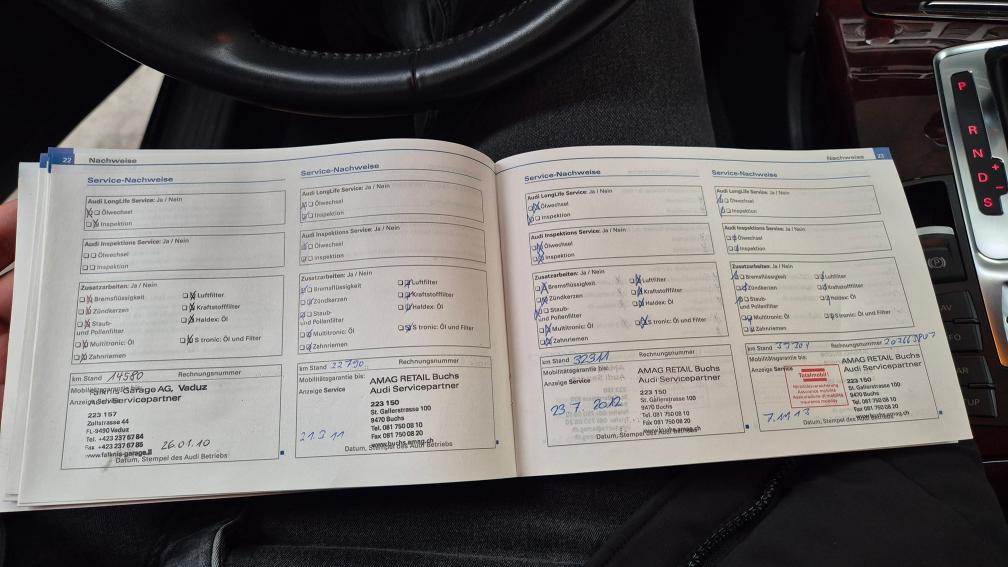 22 Nachweise
Service-Nachweise
Audi LongLife Service: Ja / Nein
Ölwechsel
Inspektion
Audi Inspektions Service: Ja / Nein
Ölwechsel
Inspektion
Zusatzarbeiten: Ja / Nein
Bremsflüssigkeit Luftfilter
Zündkerzen Kraftstofffilter
Staub- Haldex: Öl
und Pollenfilter
Multitronic: Öl S tronic: Öl und Filter
Zahnriemen
km Stand 14580 Rechnungsnummer
Mobilitätsgarantie bis:
Falknis-Garage AG, Vaduz
Anzeige Service
Audi Servicepartner
223 157
Zollstrasse 44
FL-9490 Vaduz
Tel. +423 237 67 84
Fax +423 237 67 85
www.falknis-garage.li
26.01.10
Datum, Stempel des Audi Betriebs
Service-Nachweise
Audi LongLife Service: Ja / Nein
Ölwechsel
Inspektion
Audi Inspektions Service: Ja / Nein
Ölwechsel
Inspektion
Zusatzarbeiten: Ja / Nein
Bremsflüssigkeit Luftfilter
Zündkerzen Kraftstofffilter
Staub- Haldex: Öl
und Pollenfilter
Multitronic: Öl S tronic: Öl und Filter
Zahnriemen
km Stand 22790 Rechnungsnummer
Mobilitätsgarantie bis:
AMAG RETAIL Buchs
Anzeige Service
Audi Servicepartner
223 150
St. Gallerstrasse 100
9470 Buchs
Tel. 081 750 08 10
Fax 081 750 08 20
www.buchs.amag.ch
21.3.11
Datum, Stempel des Audi Betriebs
Nachweise 23
Service-Nachweise
Audi LongLife Service: Ja / Nein
Ölwechsel
Inspektion
Audi Inspektions Service: Ja / Nein
Ölwechsel
Inspektion
Zusatzarbeiten: Ja / Nein
Bremsflüssigkeit Luftfilter
Zündkerzen Kraftstofffilter
Staub- Haldex: Öl
und Pollenfilter
Multitronic: Öl S tronic: Öl und Filter
Zahnriemen
km Stand 32311 Rechnungsnummer
Mobilitätsgarantie bis:
AMAG RETAIL Buchs
Anzeige Service
Audi Servicepartner
223 150
St. Gallerstrasse 100
9470 Buchs
Tel. 081 750 08 10
Fax 081 750 08 20
www.buchs.amag.ch
23.7.2012
Datum, Stempel des Audi Betriebs
Service-Nachweise
Audi LongLife Service: Ja / Nein
Ölwechsel
Inspektion
Audi Inspektions Service: Ja / Nein
Ölwechsel
Inspektion
Zusatzarbeiten: Ja / Nein
Bremsflüssigkeit Luftfilter
Zündkerzen Kraftstofffilter
Staub- Haldex: Öl
und Pollenfilter
Multitronic: Öl S tronic: Öl und Filter
Zahnriemen
km Stand Rechnungsnummer
Mobilitätsgarantie bis:
AMAG RETAIL Buchs
Anzeige Service
Audi Servicepartner
Totalmobil!
Mobilitätsversicherung
Assurance mobilité
Assicurazione di mobilità
Insurance mobility
223 150
St. Gallerstrasse 100
9470 Buchs
Tel. 081 750 08 10
Fax 081 750 08 20
www.buchs.amag.ch
7.11.13
Datum, Stempel des Audi Betriebs
P
R
N
D
S
+
-